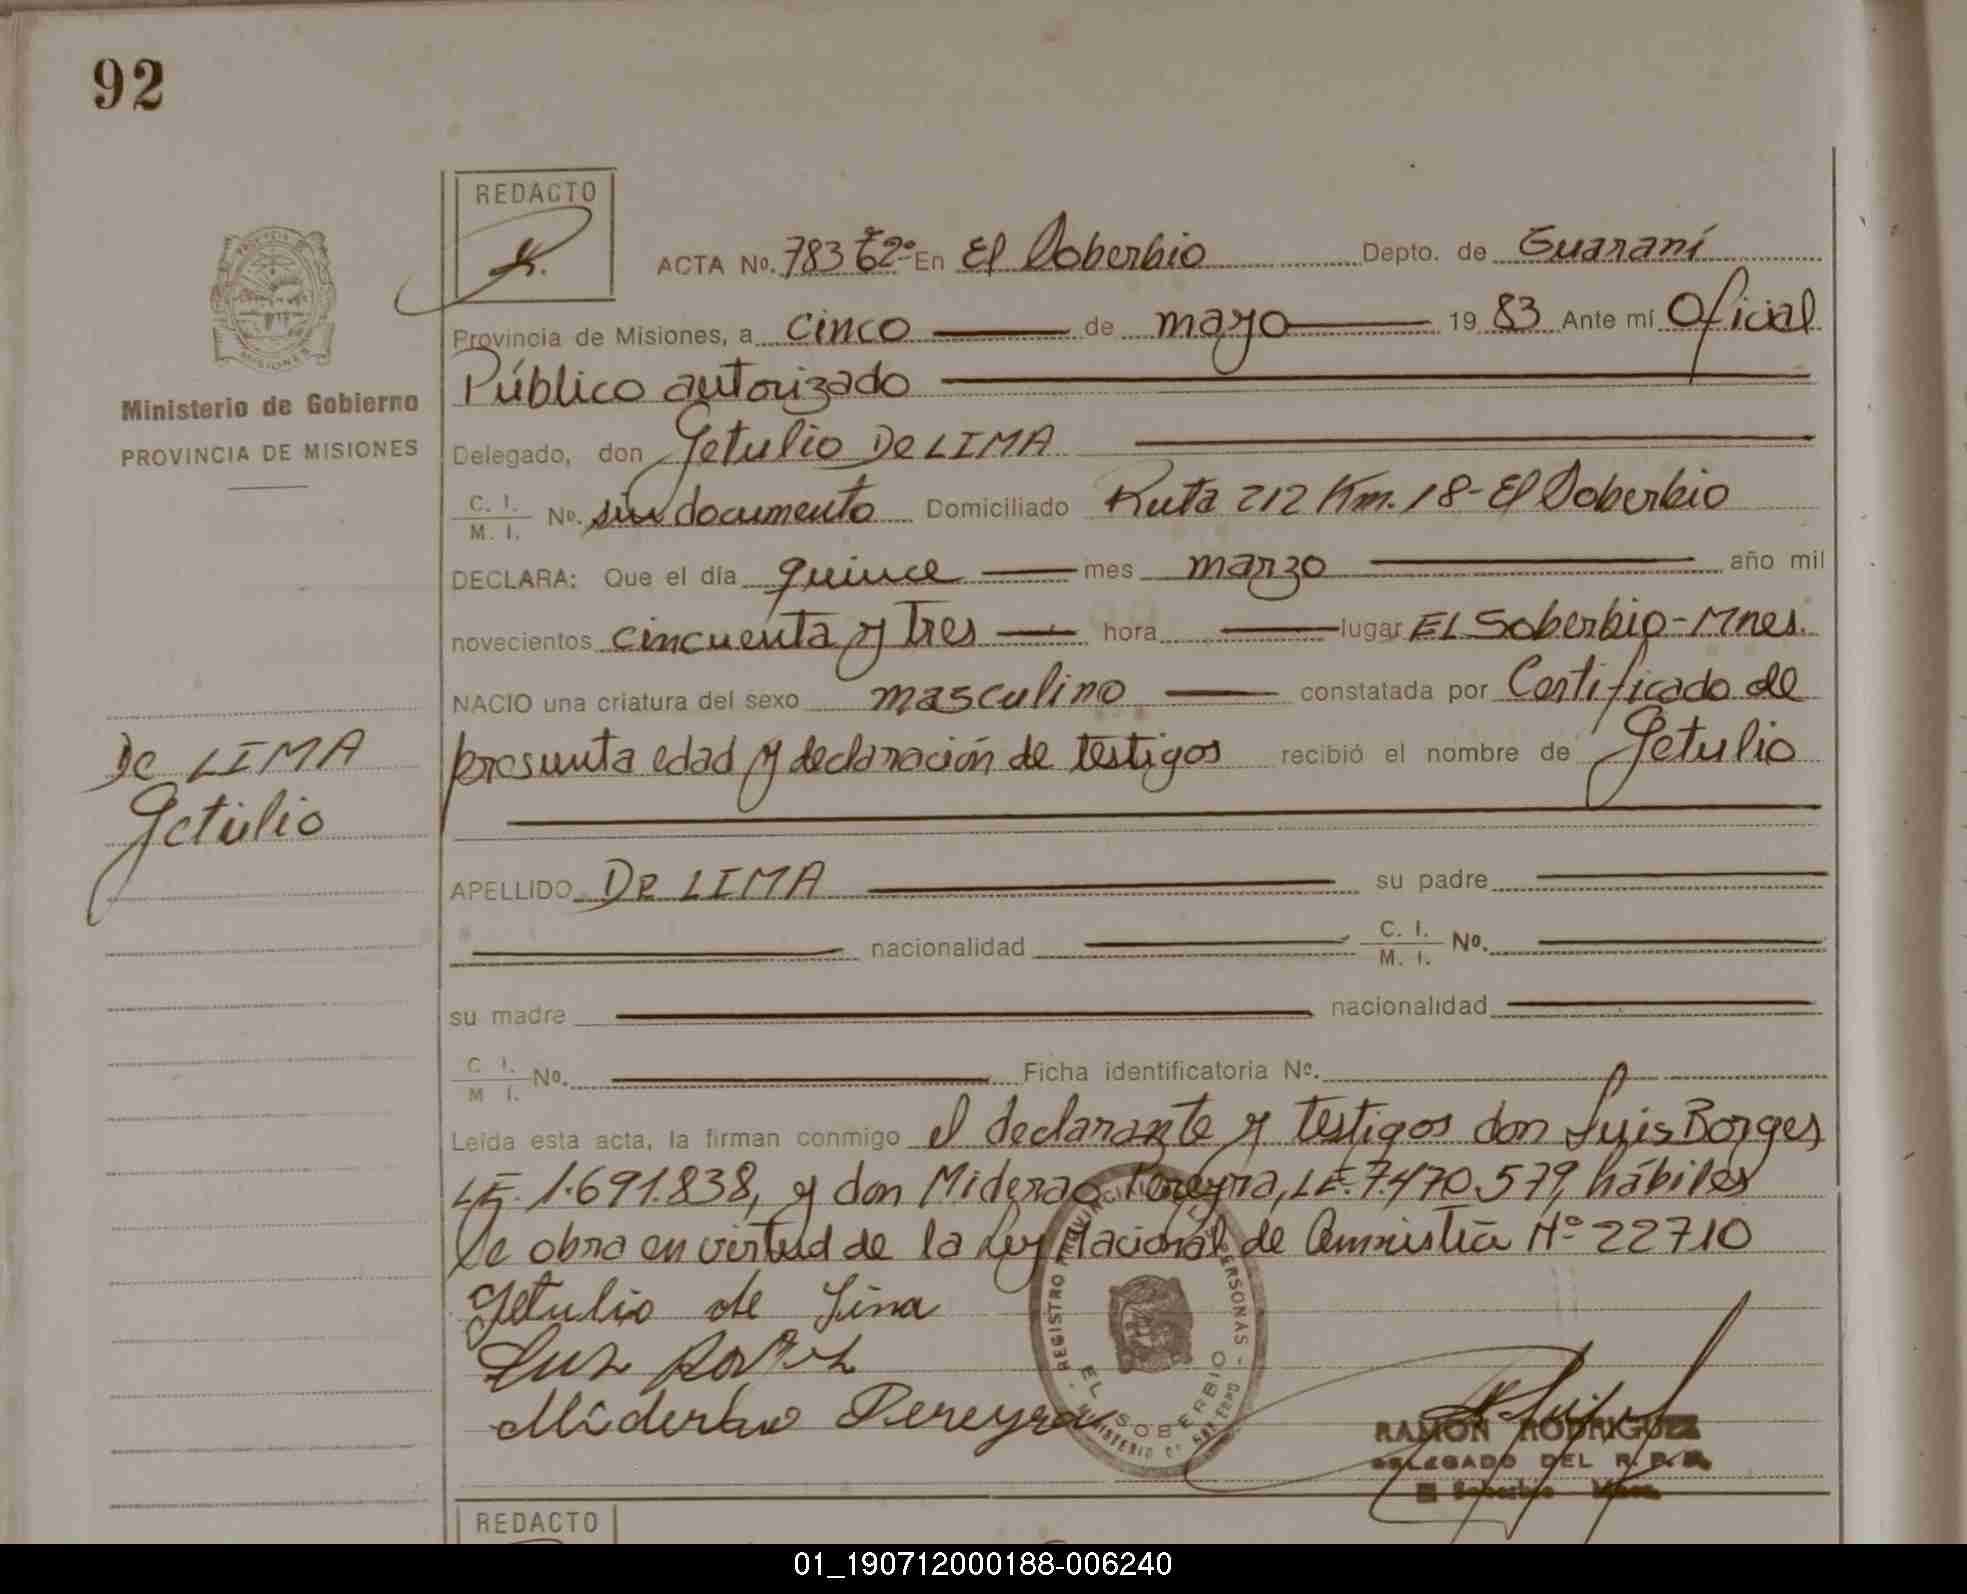 92
REDACTO
ACTA No. 783 Tº 2º En El Soberbio Depto. de Guaraní
Provincia de Misiones, a cinco de mayo 19 83 Ante mí Oficial
Público autorizado
Delegado, don Getulio De LIMA
C. I. / M. I. No. sin documento Domiciliado Ruta 212 Km. 18 - El Soberbio
DECLARA: Que el día quince mes marzo año mil
novecientos cincuenta y tres hora lugar EL Soberbio - Mnes.
NACIO una criatura del sexo masculino constatada por Certificado de
presunta edad y declaración de testigos recibió el nombre de Getulio
APELLIDO De LIMA su padre
nacionalidad C. I. / M. I. No.
su madre nacionalidad
C. I. / M. I. No. Ficha identificatoria No.
Leída esta acta, la firman conmigo el declarante y testigos don Luis Borges
LE. 1.691.838, y don Pereyra, LE. 7.470.579, hábiles
Se obra en virtud de la Ley Nacional de Amnistía Nº 22710
Getulio de Lima
Pereyra
REGISTRO PROVINCIAL PERSONAS
EL SOBERBIO
MINISTERIO DE GOBIERNO
RAMON RODRIGUEZ
DELEGADO DEL R. P. P.
El Soberbio Mnes.
MISIONES
Ministerio de Gobierno
PROVINCIA DE MISIONES
De LIMA
Getulio
REDACTO
01_190712000188-006240